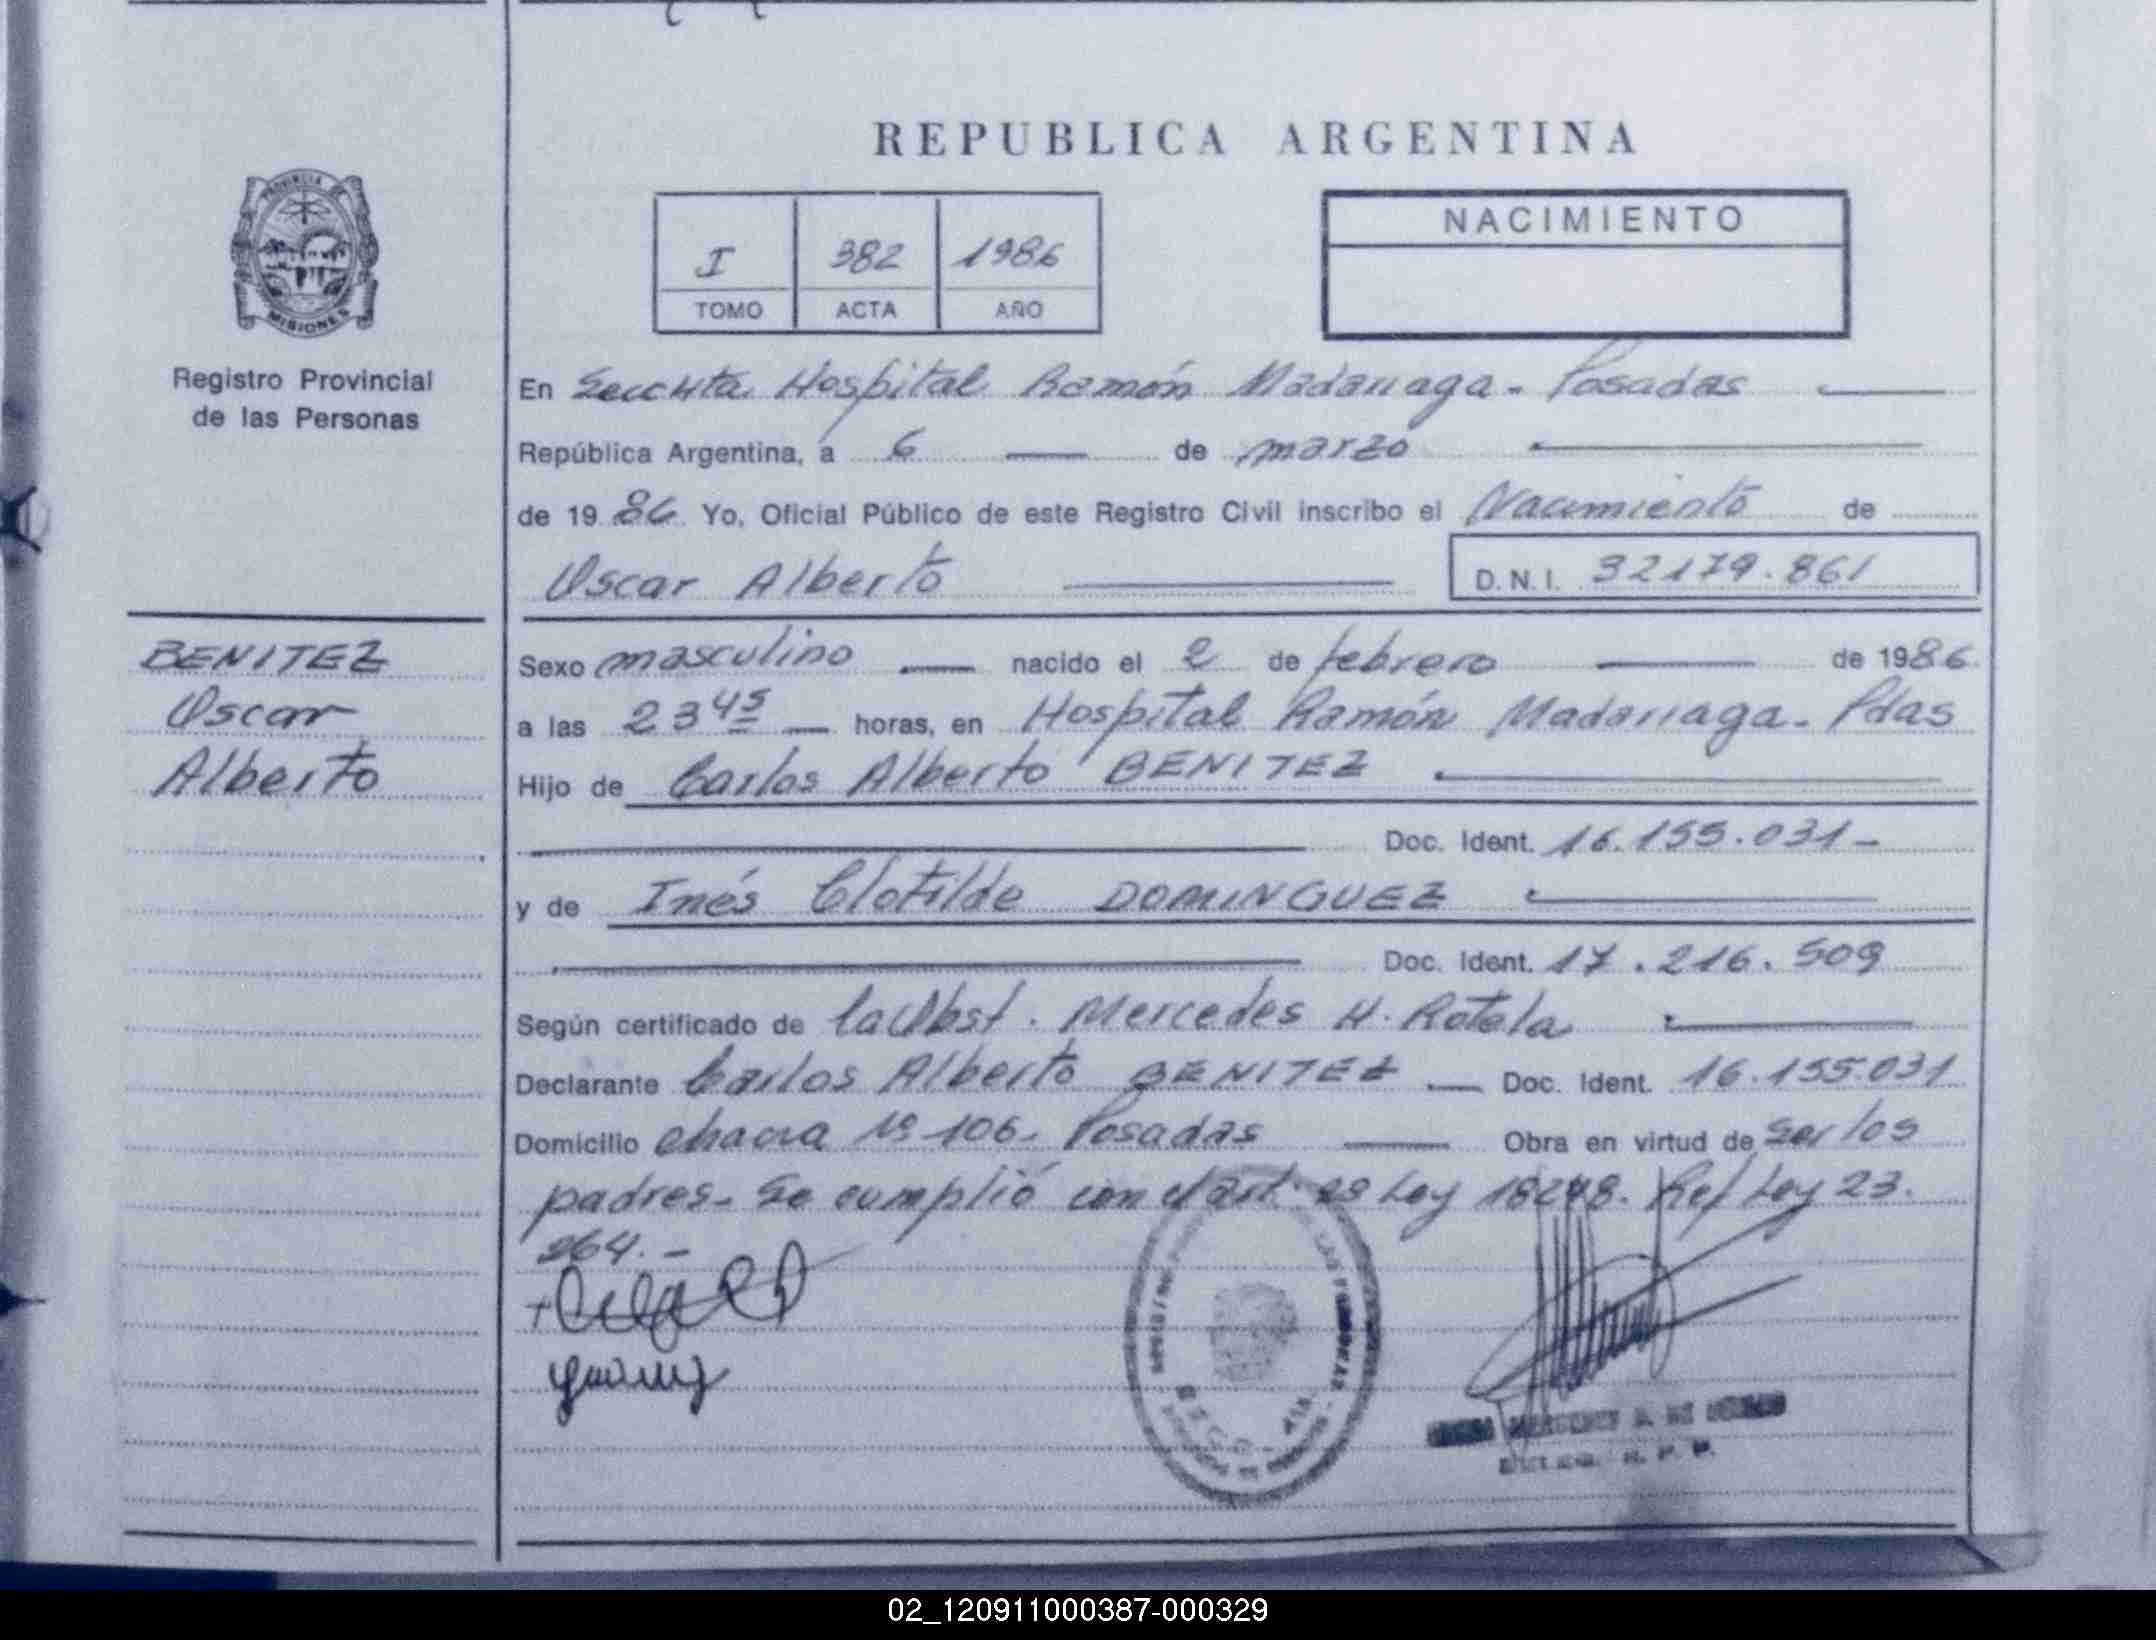 REPUBLICA ARGENTINA
PROVINCIA DE
MISIONES
Registro Provincial
de las Personas
I 382 1986
TOMO ACTA AÑO
NACIMIENTO
En Hospital Ramón Madariaga - Posadas
República Argentina, a 6 de marzo
de 19 86 Yo, Oficial Público de este Registro Civil inscribo el Nacimiento de
Oscar Alberto D.N.I. 32179.861
BENITEZ
Oscar
Alberto
Sexo masculino nacido el 2 de febrero de 1986
a las 23 45 horas, en Hospital Ramón Madariaga - Pdas
Hijo de Carlos Alberto BENITEZ
Doc. Ident. 16.155.031-
y de Inés Clotilde DOMINGUEZ
Doc. Ident. 17.216.509
Según certificado de la Obst. Mercedes H. Rotela
Declarante Carlos Alberto BENITEZ Doc. Ident. 16.155.031
Domicilio chacra Nº 106. Posadas Obra en virtud de ser los
padres - Se cumplió con el art. 2º Ley 18248. Ref Ley 23.
264.-
02_120911000387-000329